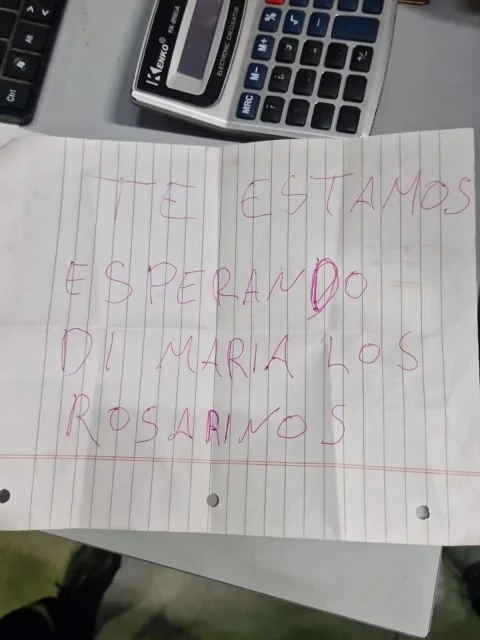 KENKO
KK-8985A
ELECTRONIC CALCULATOR
%
√
M+
M-
MRC
+/-
Ctrl
TE ESTAMOS
ESPERANDO
DI MARIA LOS
ROSARINOS